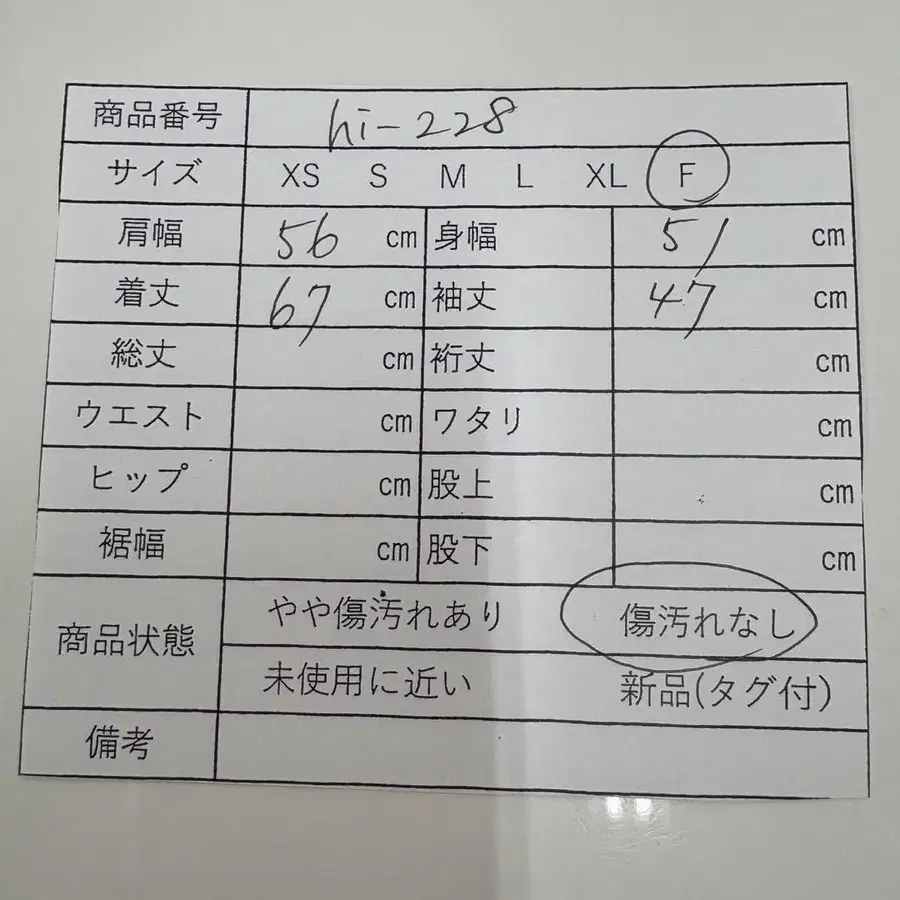 商品番号 hi-228
サイズ XS S M L XL F
肩幅 56 cm 身幅 51 cm
着丈 67 cm 袖丈 47 cm
総丈 cm 裄丈 cm
ウエスト cm ワタリ cm
ヒップ cm 股上 cm
裾幅 cm 股下 cm
商品状態 やや傷汚れあり 傷汚れなし
未使用に近い 新品(タグ付)
備考